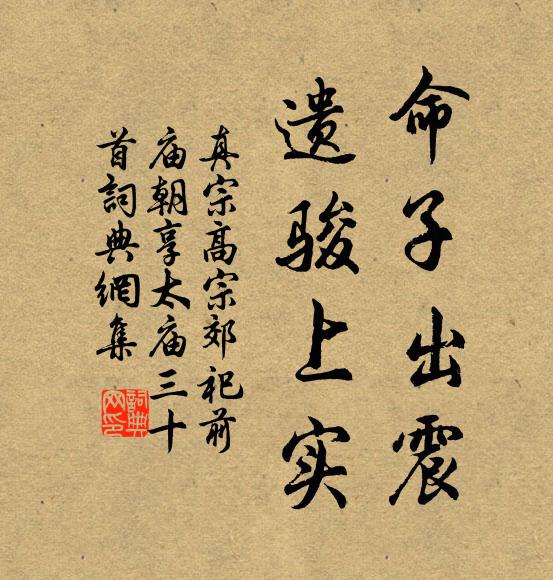 命子出震
遗骏上实
真宗高宗郊祀前
庙朝享太庙三十
首詞典網集
詞典網印